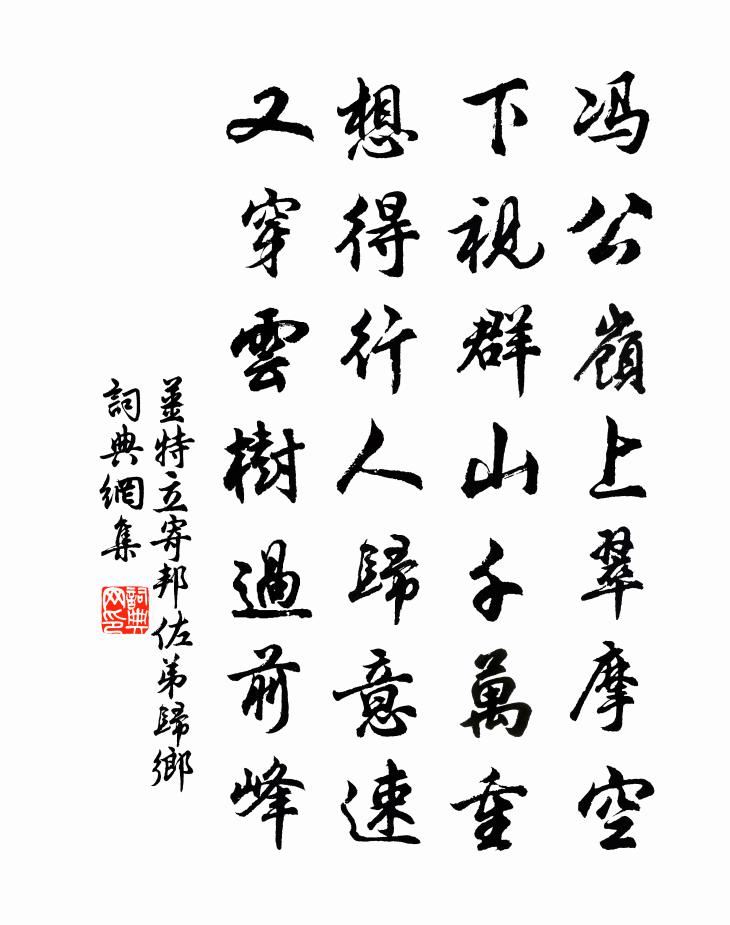 冯公嶺上翠摩空
下視群山千萬重
想得行人歸意速
又穿雲樹過前峰
薑特立寄邦佐弟歸鄉
詞典網集
詞典网印